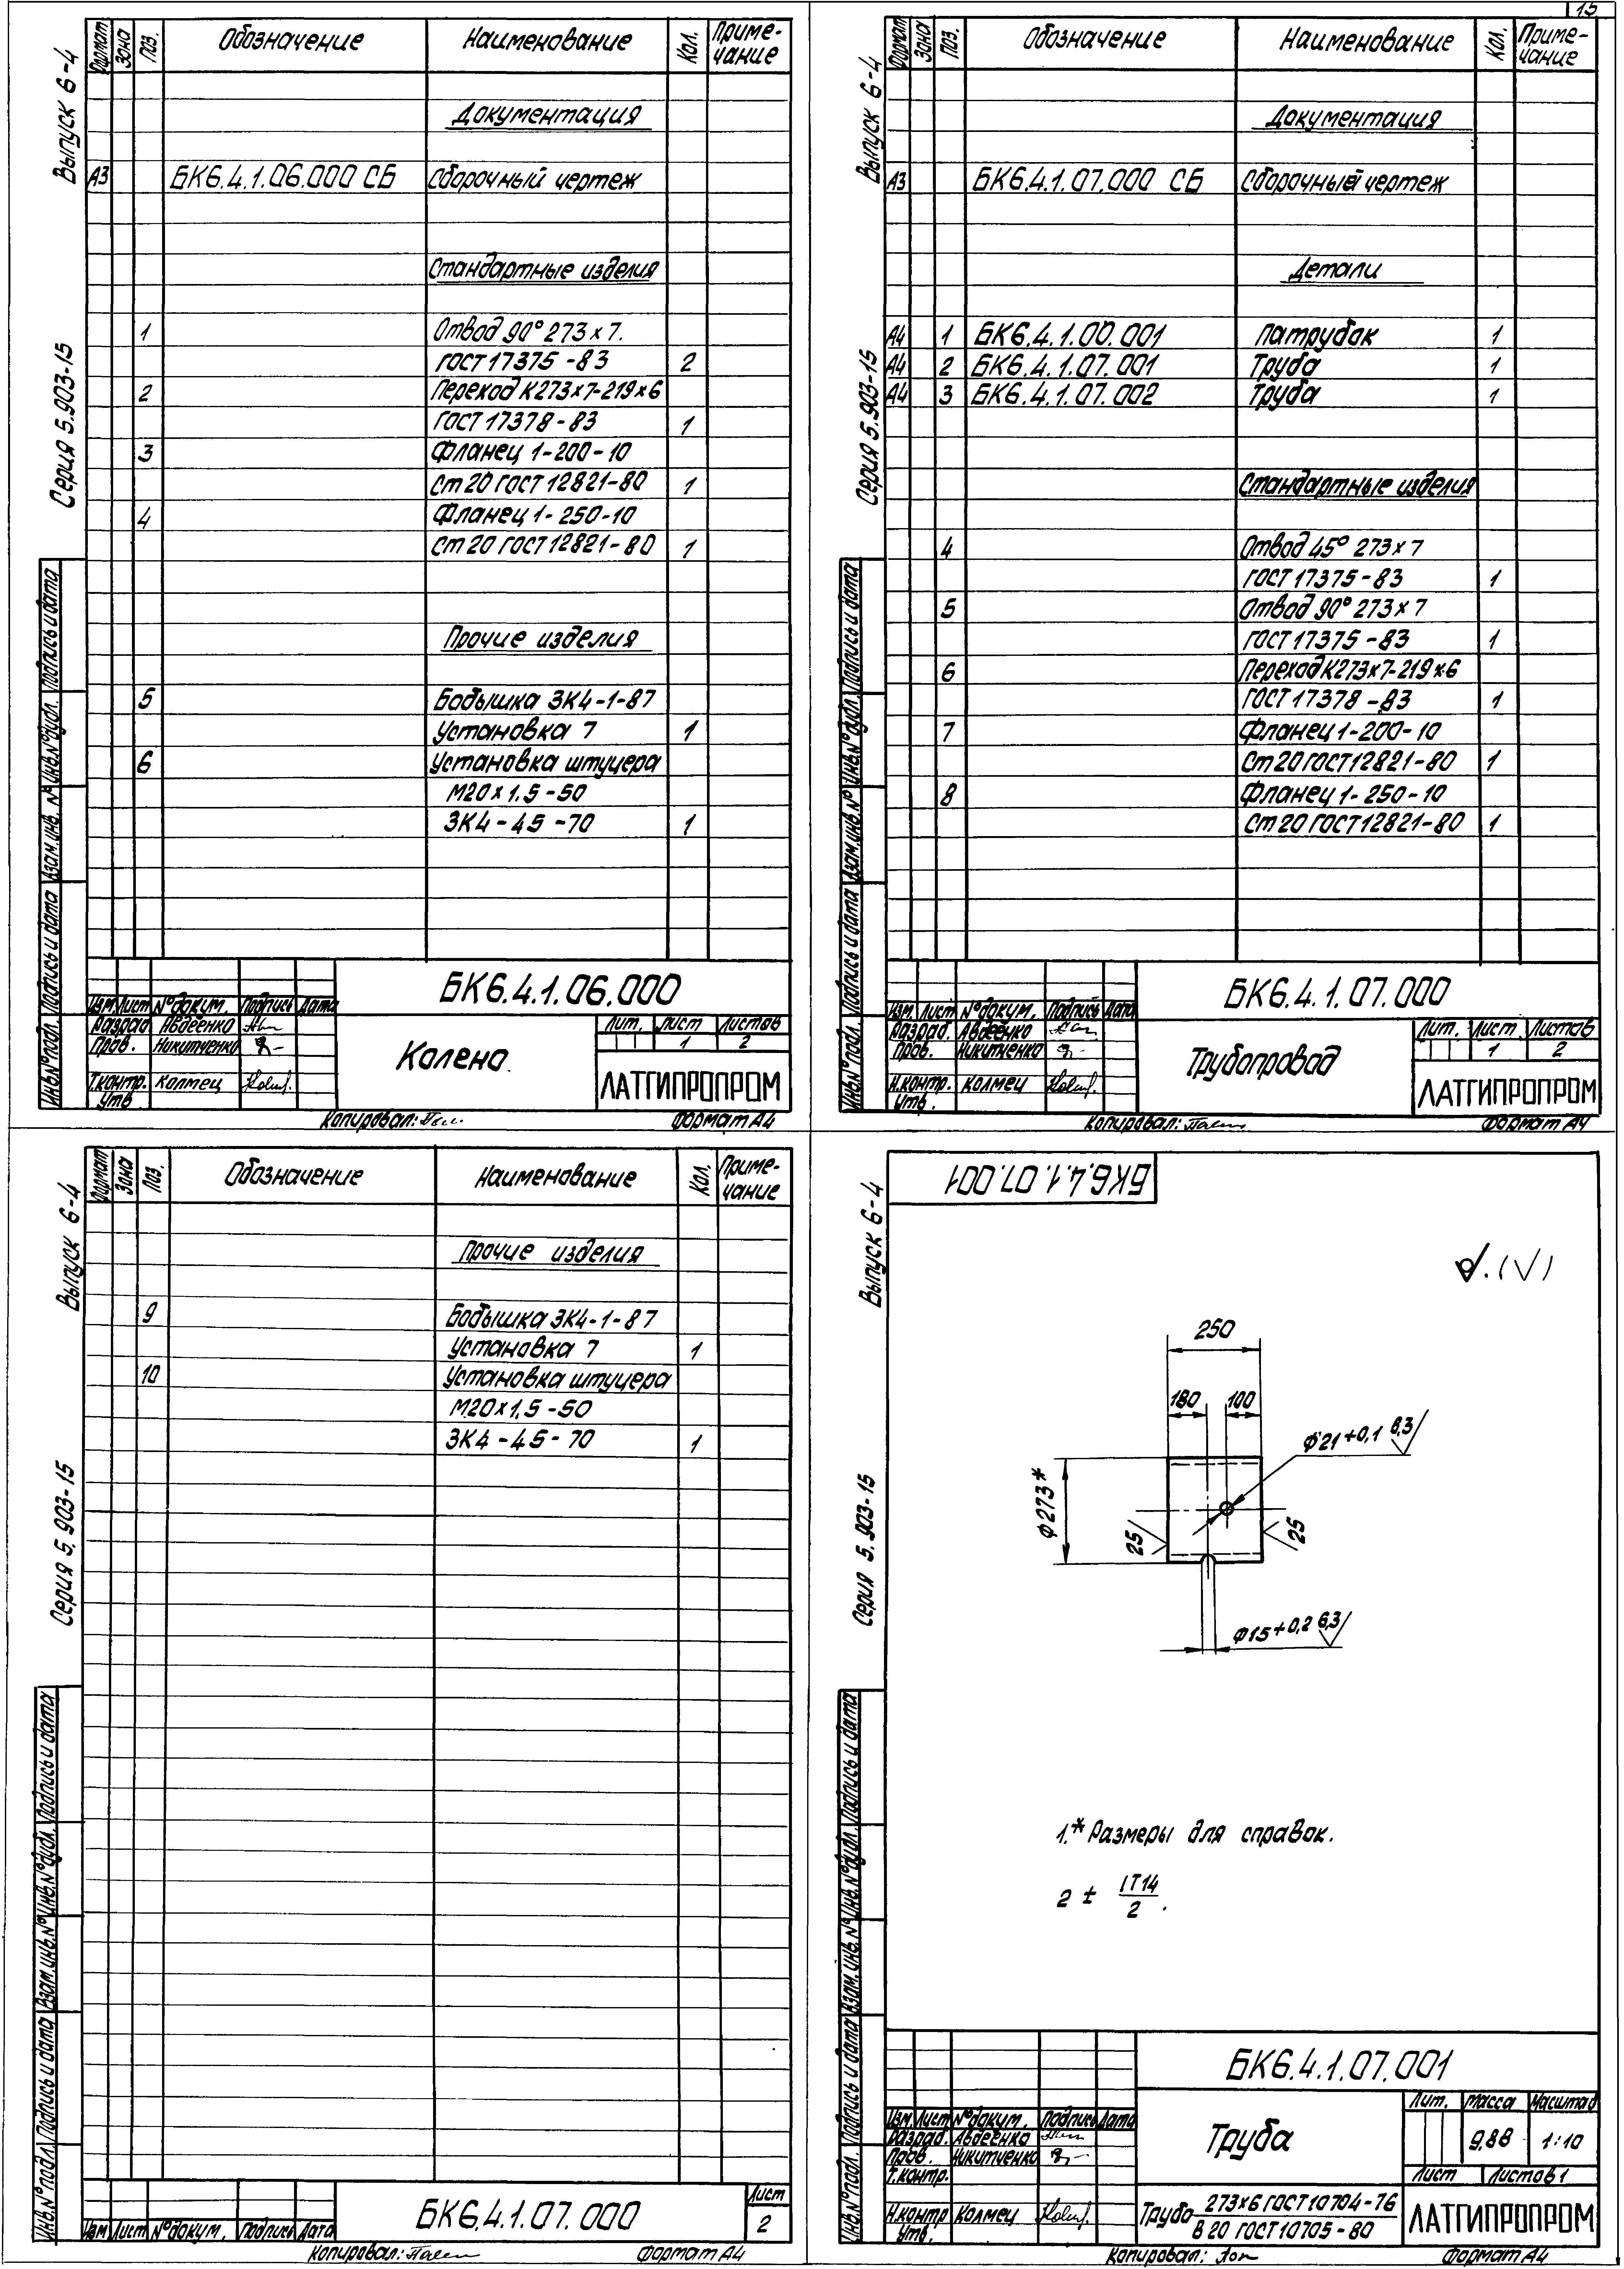 15
Выпуск 6-4
Серия 5.903-15
Формат Зона Поз. Обозначение Наименование Кол. Приме-
чание
Документация
А3 БК6.4.1.06.000 СБ Сборочный чертеж
Стандартные изделия
1 Отвод 90° 273×7.
ГОСТ 17375-83 2
2 Переход К273×7-219×6
ГОСТ 17378-83 1
3 Фланец 1-200-10
Ст 20 ГОСТ 12821-80 1
4 Фланец 1-250-10
Ст 20 ГОСТ 12821-80 1
Прочие изделия
5 Бобышка ЗК4-1-87
Установка 7 1
6 Установка штуцера
М20×1,5-50
ЗК4-45-70 1
Инв.№ подл. Подпись и дата Взам.инв.№ Инв.№ дубл. Подпись и дата
БК6.4.1.06.000
Изм. Лист № докум. Подпись Дата
Разраб. Авдеенко
Пров. Никитченко
Т.контр. Колмец
Утв.
Колено
Лит. Лист Листов
1 2
ЛАТГИПРОПРОМ
Копировал: Формат А4
Выпуск 6-4
Серия 5.903-15
Формат Зона Поз. Обозначение Наименование Кол. Приме-
чание
Документация
А3 БК6.4.1.07.000 СБ Сборочный чертеж
Детали
А4 1 БК6.4.1.00.001 Патрубок 1
А4 2 БК6.4.1.07.001 Труба 1
А4 3 БК6.4.1.07.002 Труба 1
Стандартные изделия
4 Отвод 45° 273×7
ГОСТ 17375-83 1
5 Отвод 90° 273×7
ГОСТ 17375-83 1
6 Переход К273×7-219×6
ГОСТ 17378-83 1
7 Фланец 1-200-10
Ст 20 ГОСТ 12821-80 1
8 Фланец 1-250-10
Ст 20 ГОСТ 12821-80 1
Инв.№ подл. Подпись и дата Взам.инв.№ Инв.№ дубл. Подпись и дата
БК6.4.1.07.000
Изм. Лист № докум. Подпись Дата
Разраб. Авдеенко
Пров. Никитченко
Н.контр. Колмец
Утв.
Трубопровод
Лит. Лист Листов
1 2
ЛАТГИПРОПРОМ
Копировал: Формат А4
Выпуск 6-4
Серия 5.903-15
Формат Зона Поз. Обозначение Наименование Кол. Приме-
чание
Прочие изделия
9 Бобышка ЗК4-1-87
Установка 7 1
10 Установка штуцера
М20×1,5-50
ЗК4-45-70 1
Инв.№ подл. Подпись и дата Взам.инв.№ Инв.№ дубл. Подпись и дата
Изм Лист № докум. Подпись Дата
БК6.4.1.07.000
Лист
2
Копировал: Формат А4
Выпуск 6-4
Серия 5.903-15
БК6.4.1.07.001
(√)
250
180 100
Ф21+0,1 6,3
Ф273*
25 25
Ф15+0,2 6,3
1.* Размеры для справок.
2 ± IT14
2 .
Инв.№ подл. Подпись и дата Взам.инв.№ Инв.№ дубл. Подпись и дата
БК6.4.1.07.001
Изм. Лист № докум. Подпись Дата
Разраб. Авдеенко
Пров. Никитченко
Т.контр.
Н.контр Колмец
Утв.
Труба
Лит. Масса Масштаб
9,88 1:10
Лист Листов 1
Труба 273×6 ГОСТ 10704-76
В 20 ГОСТ 10705-80
ЛАТГИПРОПРОМ
Копировал: Формат А4